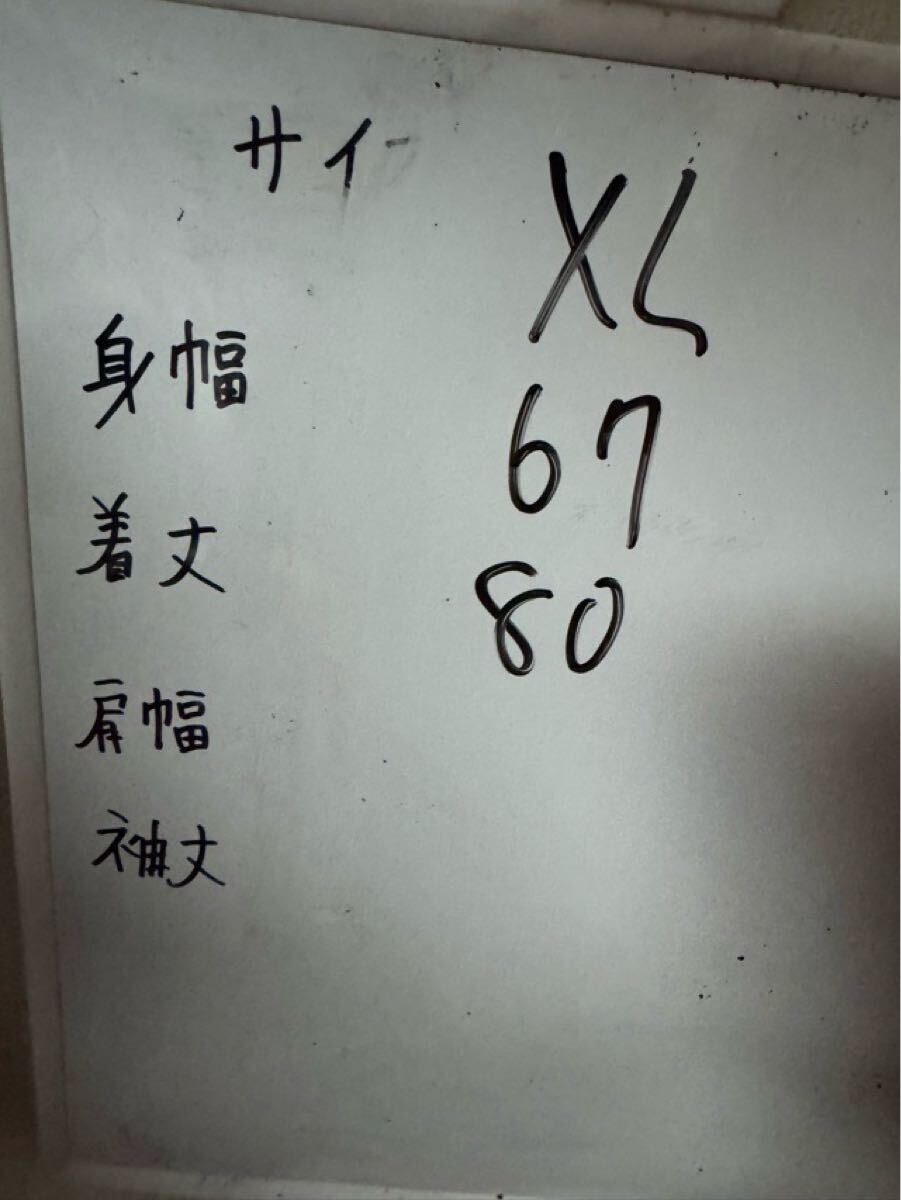 サイ XL
身幅 67
着丈 80
肩幅
袖丈